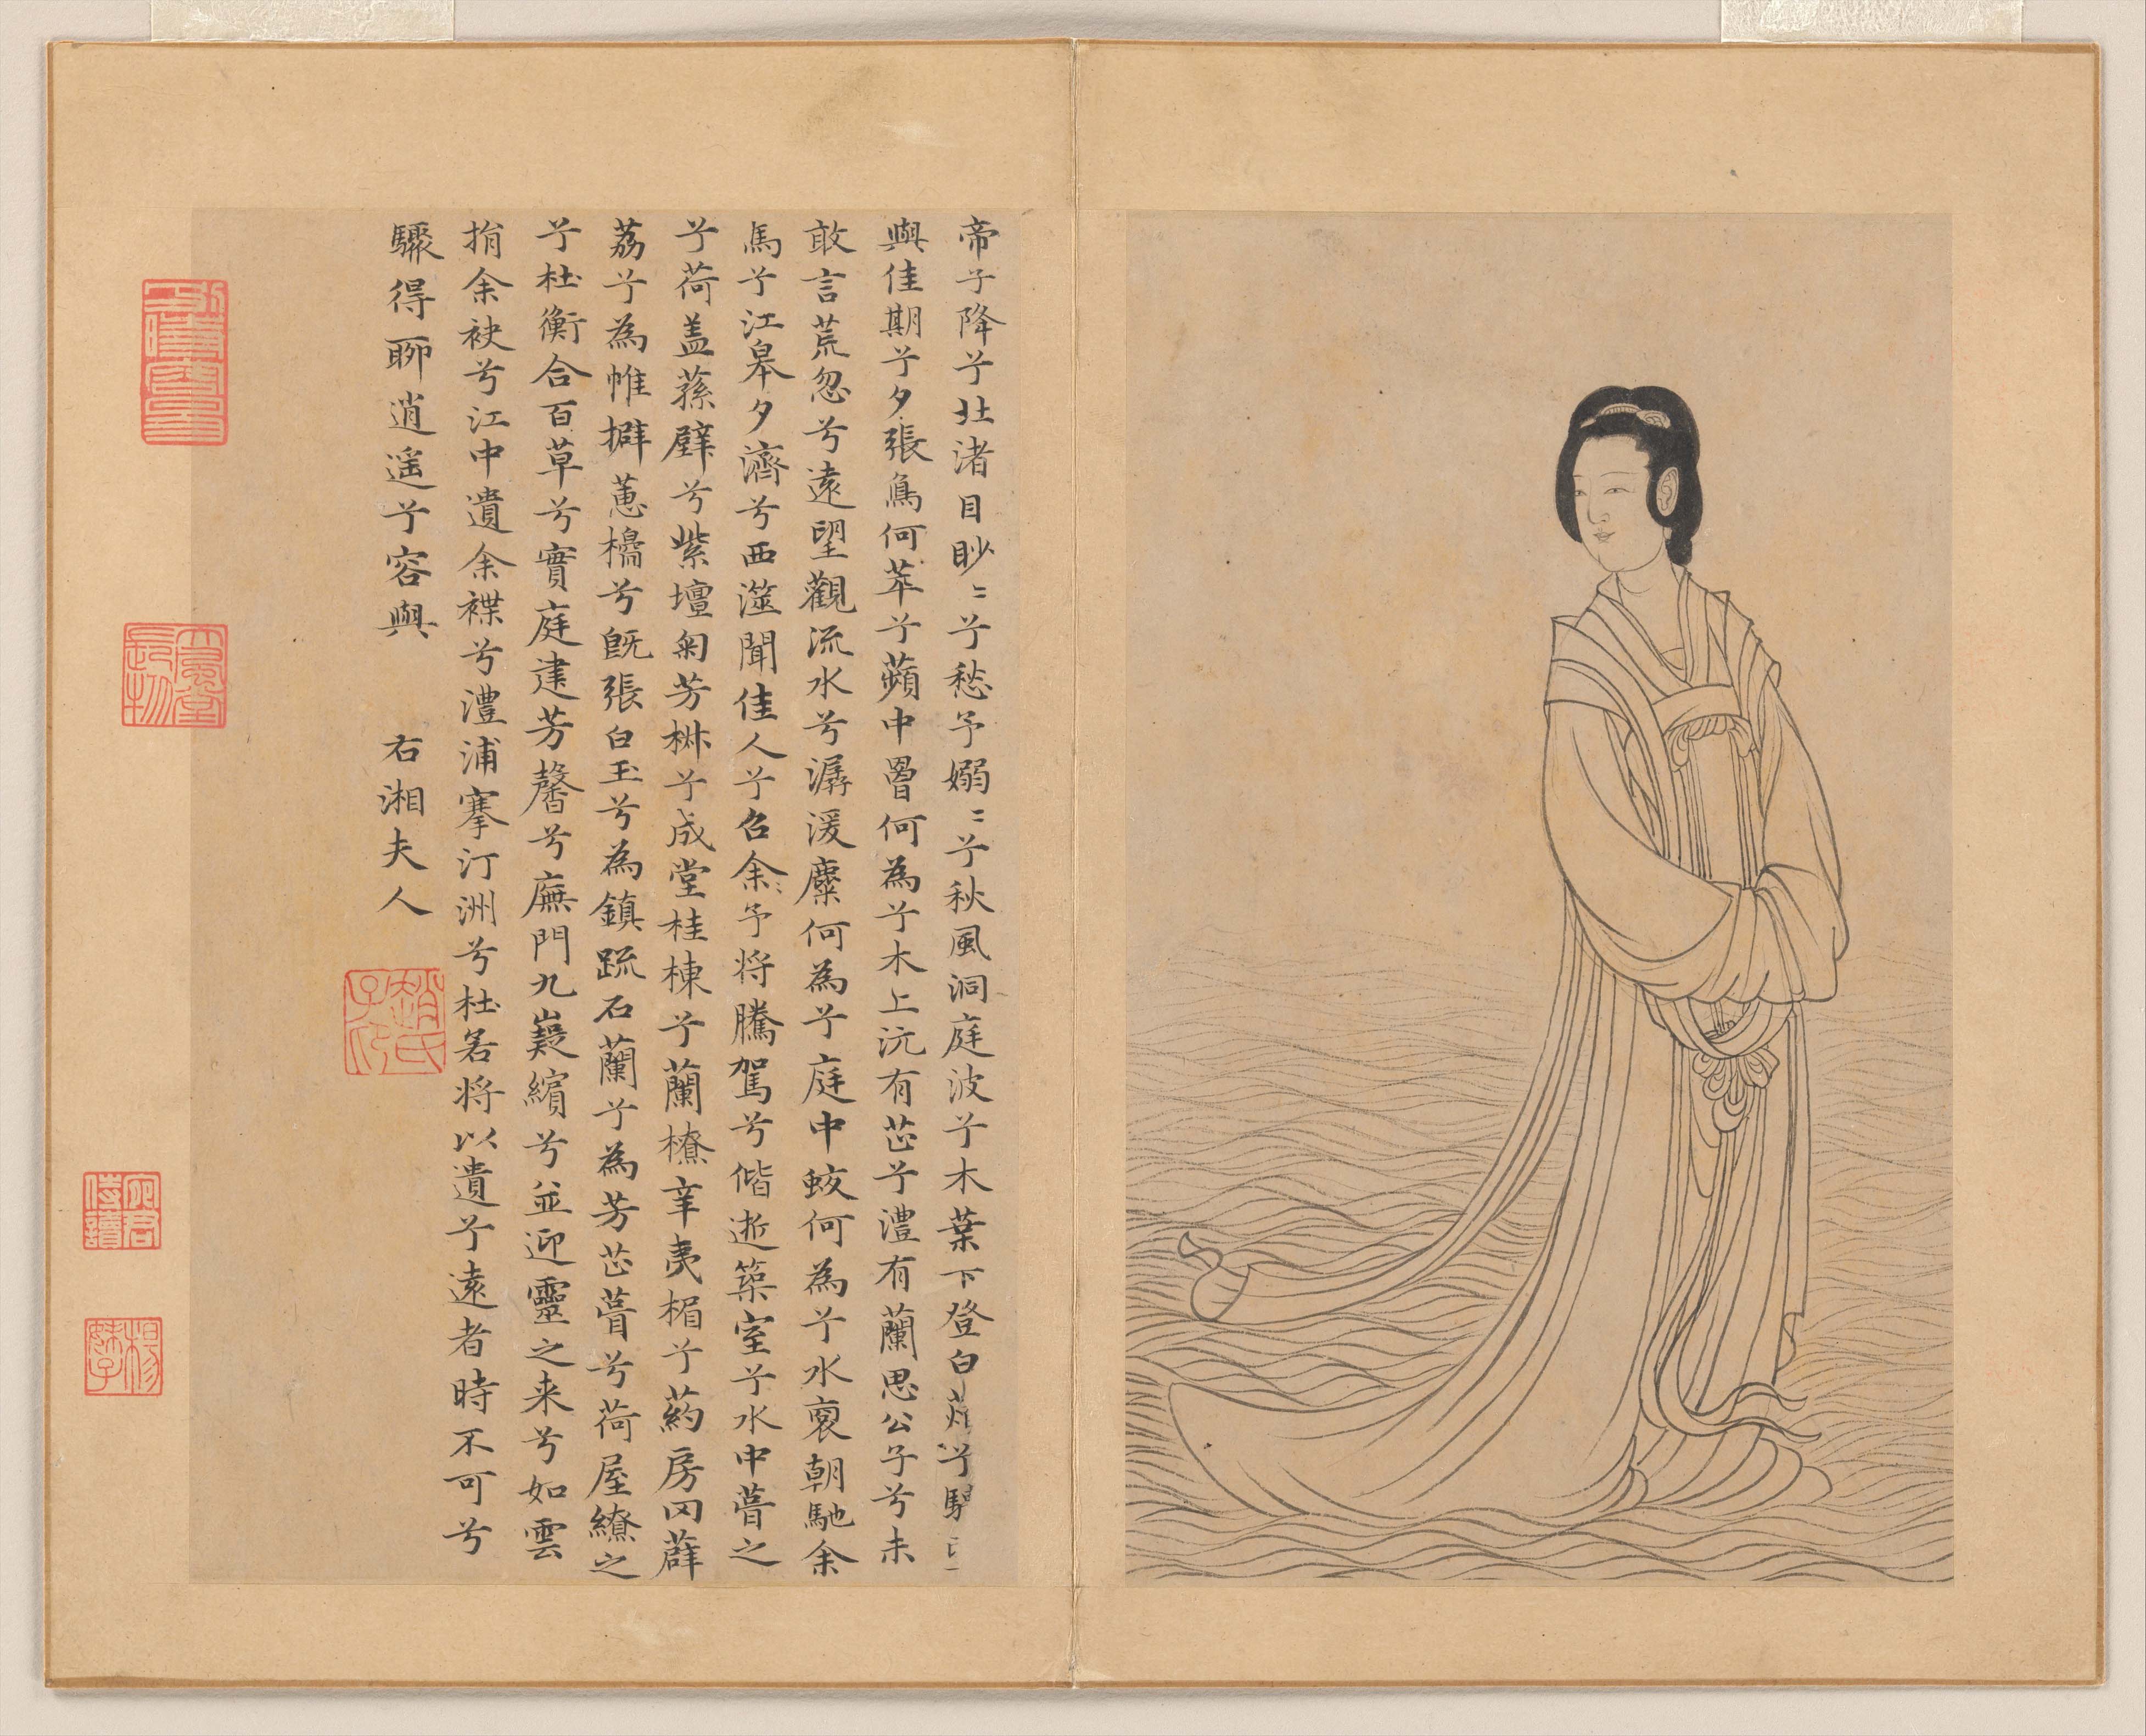 帝子降兮北渚目眇〻兮愁予嫋〻兮秋風洞庭波兮木葉下登白
與佳期兮夕張鳥何萃兮蘋中罾何為兮木上沅有芷兮澧有蘭思公子兮未
敢言荒忽兮遠望觀流水兮潺湲麋何為兮庭中蛟何為兮水裔朝馳余
馬兮江皋夕濟兮西澨聞佳人兮召余予將騰駕兮偕逝築室兮水中葺之
兮荷盖蓀壁兮紫壇匊芳椒兮成堂桂棟兮蘭橑辛夷楣兮葯房罔薜
荔兮為帷擗蕙櫋兮旣張白玉兮為鎮疏石蘭兮為芳芷葺兮荷屋繚之
兮杜衡合百草兮實庭建芳馨兮廡門九嶷繽兮並迎靈之来兮如雲
捐余袂兮江中遺余褋兮澧浦搴汀洲兮杜若將以遺兮遠者時不可兮
驟得聊逍遥兮容與
右湘夫人
趙氏子昂